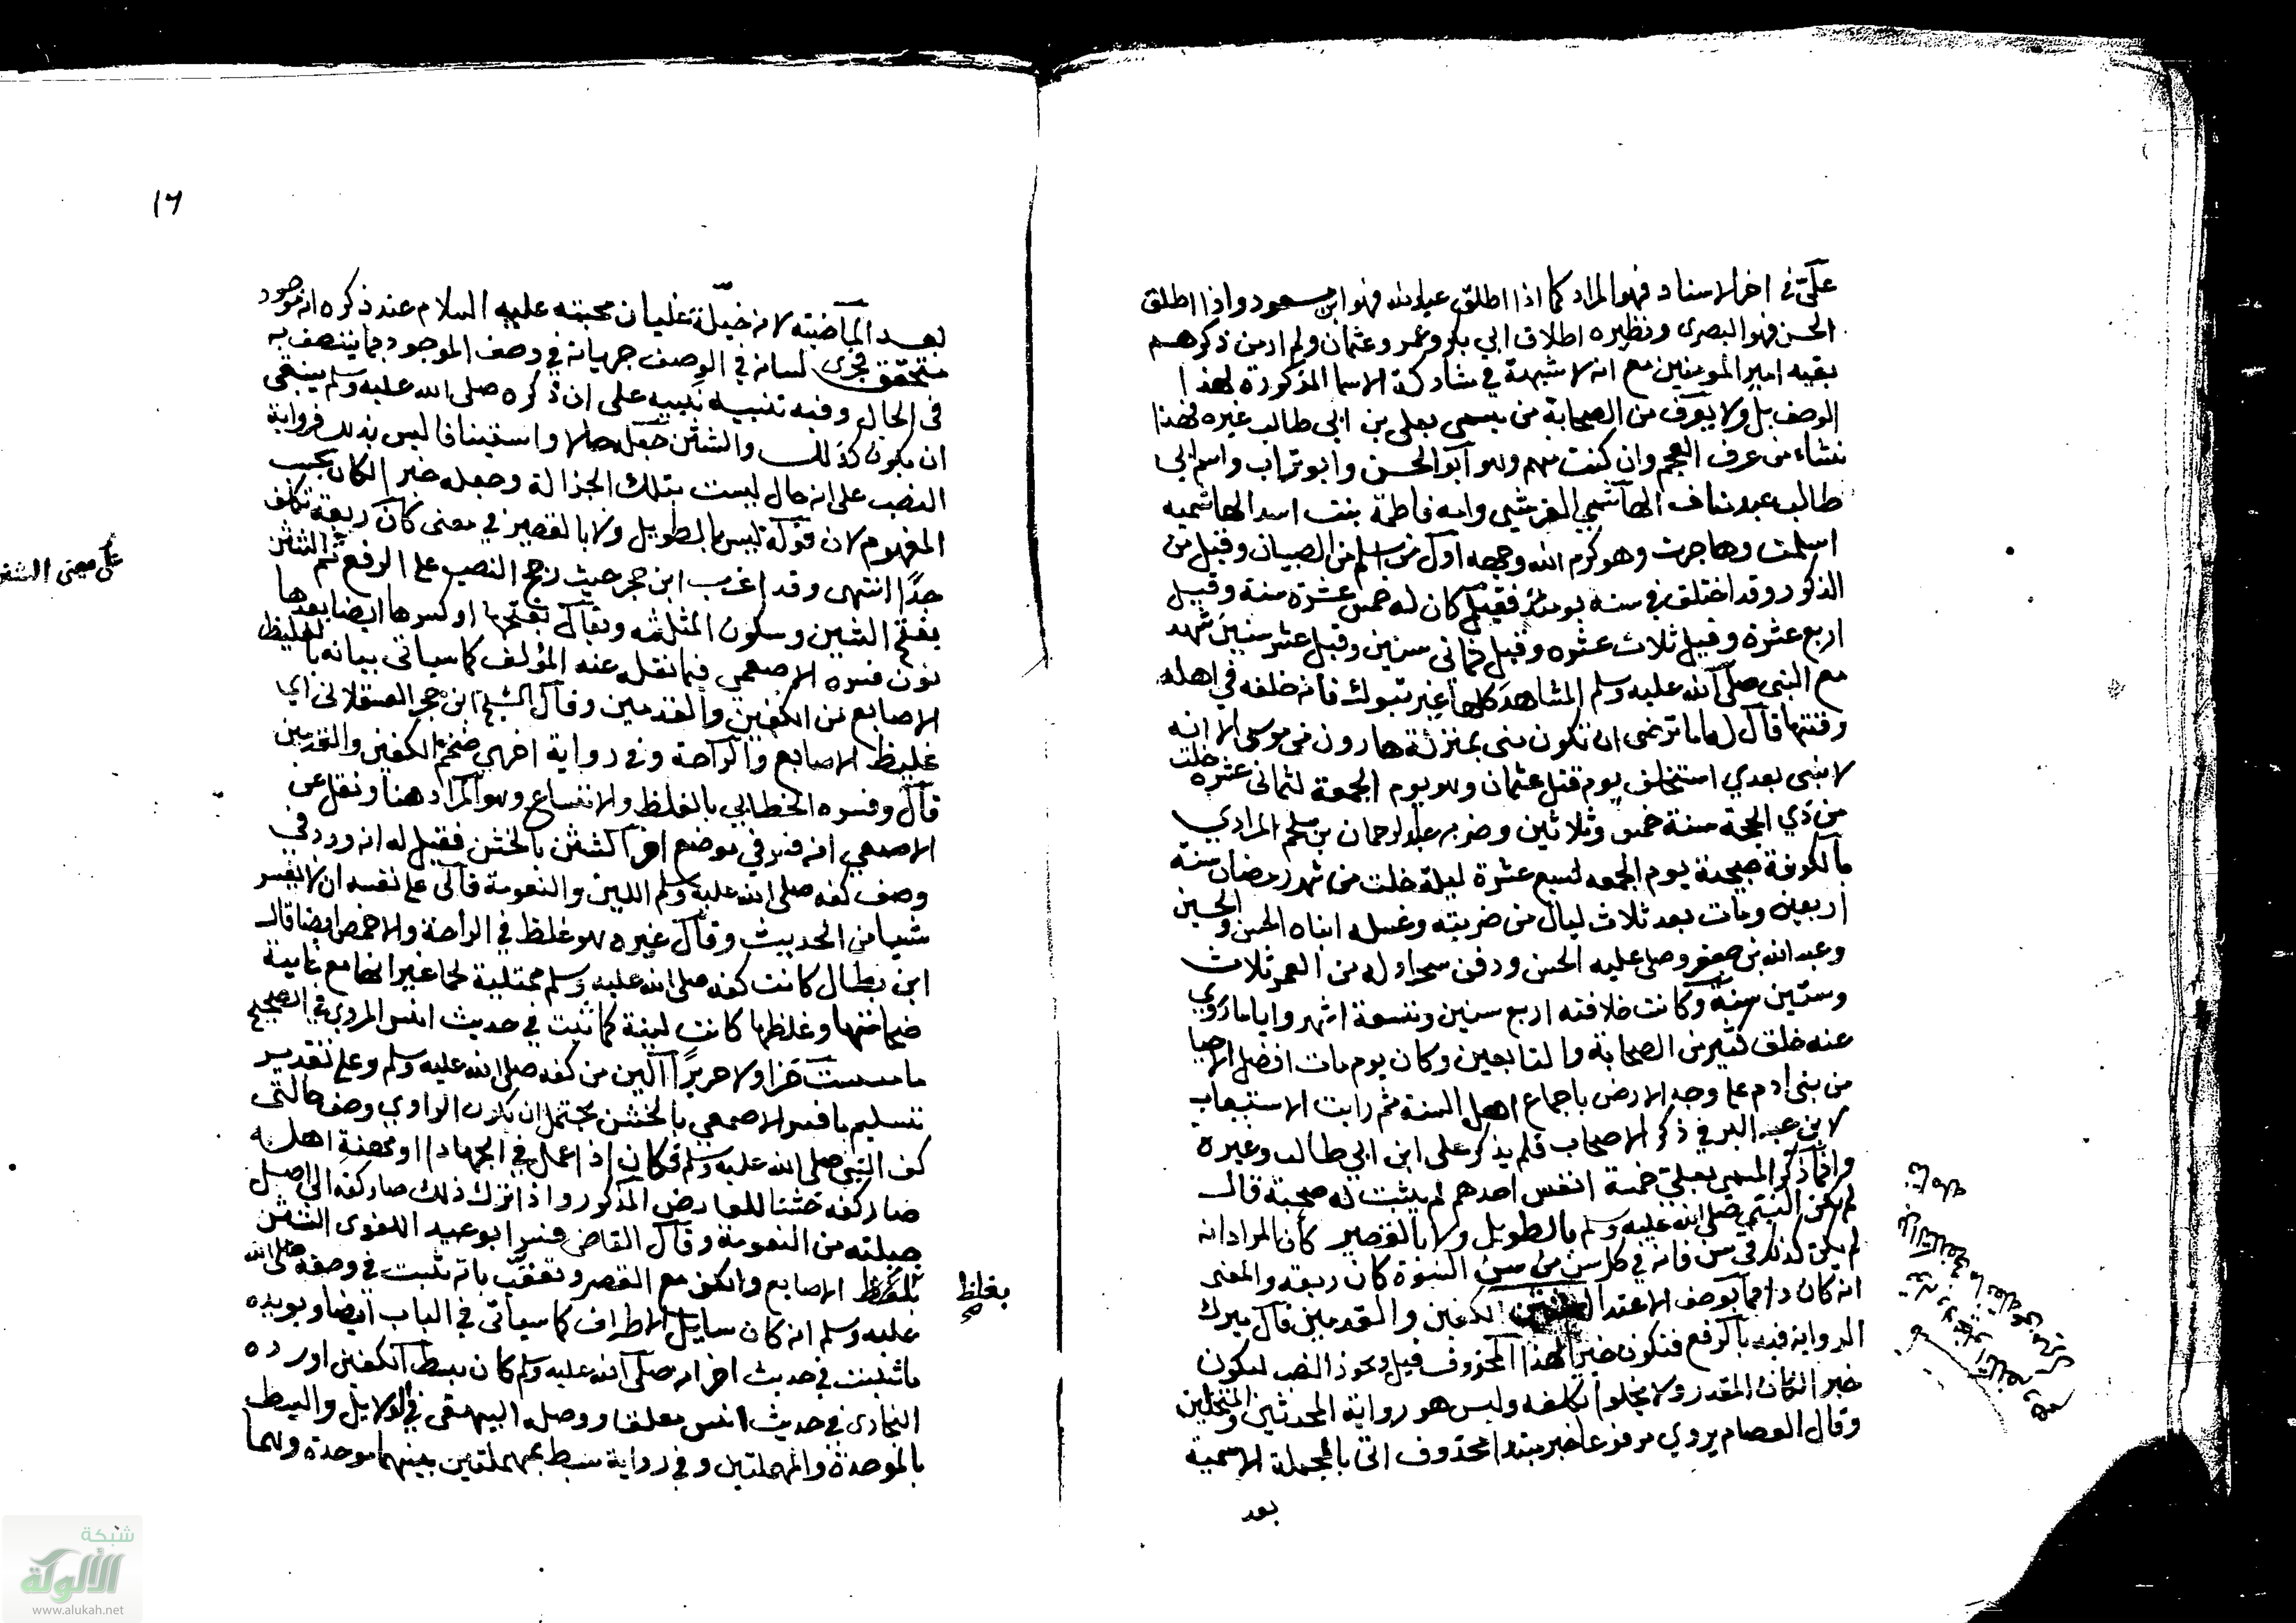 علي في اخر الاسناد فهو المراد كما اذا اطلق عبد الله فهو ابن مسعود واذا اطلق
الحسن فهو البصرى ونظيره اطلاق ابي بكر وعمر وعثمان ولم ار من ذكرهم
بقيه امير المومنين مع انه لا شبهة في مشاركة الاسما المذكورة لهذا
الوصف بل ولا يعرف من الصحابة من يسمى بعلى بن ابى طالب غيره فهذا
نشاء من عرف العجم وان كنت منهم وهو ابو الحسن وابو تراب واسم ابي
طالب عبد مناف الهاشمي القرشي وامه فاطمة بنت اسد الهاشميه
اسلمت وهاجرت وهو كرم الله وجهه اول من اسلم من الصبيان وقيل من
الذكور وقد اختلف في سنه يومئذ فقيل كان له خمس عشرة سنة وقيل
اربع عشرة وقيل ثلاث عشره وقيل ثمانى سنين وقيل عشر سنين شهد
مع النبى صلى الله عليه وسلم المشاهد كلها غير تبوك فانه خلفه في اهله
وقتها قال له اما ترضى ان تكون منى بمنزلة هارون من موسى الا انه
لا نبى بعدي استخلف يوم قتل عثمان وهو يوم الجمعة لثمانى عشرة خلت
من ذي الحجة سنة خمس وثلاثين وضربه عبد الرحمان بن ملجم المرادي
بالكوفة صبيحة يوم الجمعه لسبع عشرة ليلة خلت من شهر رمضان سنة
اربعين ومات بعد ثلاث ليال من ضربته وغسله ابناه الحسن والحسين
وعبد الله بن جعفر وصلى عليه الحسن ودفن سحرا وله من العمر ثلاث
وستين سنة وكانت خلافته اربع سنين وتسعة اشهر واياما روي
عنه خلق كثير من الصحابة والتابعين وكان يوم مات افضل الاحيا
من بنى ادم على وجه الارض باجماع اهل السنة ثم رايت الاستيعاب
لابن عبد البر في ذكر الاصحاب فلم يذكر على ابن ابي طالب وغيره
وانما ذكر المسمى بعلي خمسة انفس احدهم لم يثبت له صحبة قال
لم يكن النبي صلى الله عليه وسلم بالطويل ولا بالقصير كأن المراد انه
لم يكن كذلك في سن فانه في كل سن من سن النبوة كان ربعه والمعنى
انه كان دائما بوصف الاعتدال الكفين والقدمين قال ميرك
الرواية فيه بالرفع فتكون خبر لهذا المحذوف قيل ويجوز النصب ليكون
خبر الكان المقدر ولا يخلو تكلفه وليس هو رواية المحدثين
وقال العصام يروي مرفوعا خبر مبتدا محذوف اتى بالجملة الاسمية
بعد
١٦
بعد الماضية لانه خيله غليان محبته عليه السلام عند ذكره انه موجود
متحقق فجرى لسانه في الوصف جريانه في وصف الموجود بما يتصف به
في الحال وفيه تنبيه نبيه على ان ذكره صلى الله عليه وسلم ينبغي
ان يكون كذلك والشثن جعله حالا واستينافا ليس بذلك فرواية
النصب على انه حال ليست بتلك الجزالة وجعله خبر الكان بحسب
المفهوم لان قوله ليس بالطويل ولا بالقصير في معنى كان ربعة تكلف
جدا انتهى وقد اغرب ابن حجر حيث رجح النصب على الرفع ثم الشثن
بفتح الشين وسكون المثلثه ويقال بفتحها او كسرها ايضا بعدها
نون فسره الاصمعي فيما نقله عنه المؤلف كما سياتى بيانه بالغليظ
الاصابع من الكفين والقدمين وقال الشيخ ابن حجر العسقلانى اي
غليظ الاصابع والراحة وفي رواية اخرى ضخم الكفين والقدمين
قال وفسره الخطابي بالغلظ والاتساع وهو المراد هنا ونقل عن
الاصمعي انه فسر في موضع اخر الشثن بالخشن فقيل له انه ورد في
وصف كفه صلى الله عليه وسلم اللين والنعومة فآلى على نفسه ان لا يفسر
شيا من الحديث وقال غيره هو غلظ في الراحة والاخمص ايضا قال
ابن بطال كانت كفه صلى الله عليه وسلم ممتلية لحما غير انها مع غاية
ضخامتها وغلظها كانت لينة كما ثبت في حديث انس المروى في الصحيح
ما مسست خزا ولا حريرا الين من كفه صلى الله عليه وسلم وعلى تقدير
تسليم ما فسر الاصمعي بالخشن يحتمل ان يكون الراوي وصف حالتى
كف النبي صلى الله عليه وسلم فكان اذا عمل في الجهاد او مهنة اهله
صار كفه خشنا للعارض المذكور واذا ترك ذلك صار كفه الى اصل
جبلته من النعومة وقال القاضى فسر ابو عبيد اللغوى الشثن
بغلظ الاصابع والكف مع القصر وتعقب بانه ثبت في وصفه صلى الله
عليه وسلم انه كان سايل الاطراف كما سياتى في الباب ايضا ويويده
ما ثبت في حديث اخر انه صلى الله عليه وسلم كان بسط الكفين اورده
البخارى في حديث انس معلقا ووصله البيهقى في الدلايل والبسط
بالموحدة والمهملتين وفي رواية سبط بمهملتين بينهما موحدة وهما
بغلظ
صح
شبكة
الألوكة
www.alukah.net